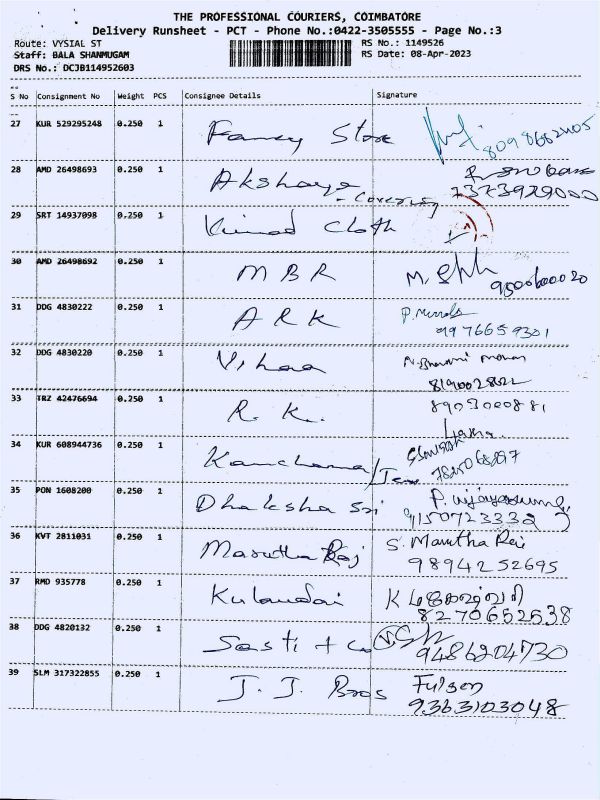 THE PROFESSIONAL COURIERS, COIMBATORE
Delivery Runsheet - PCT - Phone No.:0422-3505555 - Page No.:3
Route: VYSIAL ST RS No.: 1149526
Staff: BALA SHANMUGAM RS Date: 08-Apr-2023
DRS No.: DCJB114952603
S No Consignment No Weight PCS Consignee Details Signature
27 KUR 529295248 0.250 1 Fancy Store
28 AMD 26498693 0.250 1 Akshaya
- Covering 7373929000
29 SRT 14937098 0.250 1 Cloth
30 AMD 26498692 0.250 1 MBR M.
31 DDG 4830222 0.250 1 ARK P.
9976659301
32 DDG 4830220 0.250 1 Vihaa
33 TRZ 42476694 0.250 1 R. K. 8903000881
34 KUR 608944736 0.250 1 Kanchana
35 PON 1608200 0.250 1 Dhaksha Sri P.
9150723332
36 KVT 2811031 0.250 1 Marutha Raj S. Marutha Raj
9894252695
37 RMD 935778 0.250 1 Kulandai K
8270652538
38 DDG 4820132 0.250 1 Sasti + Co
9486204730
39 SLM 317322855 0.250 1 J. J. Bros
9363103048